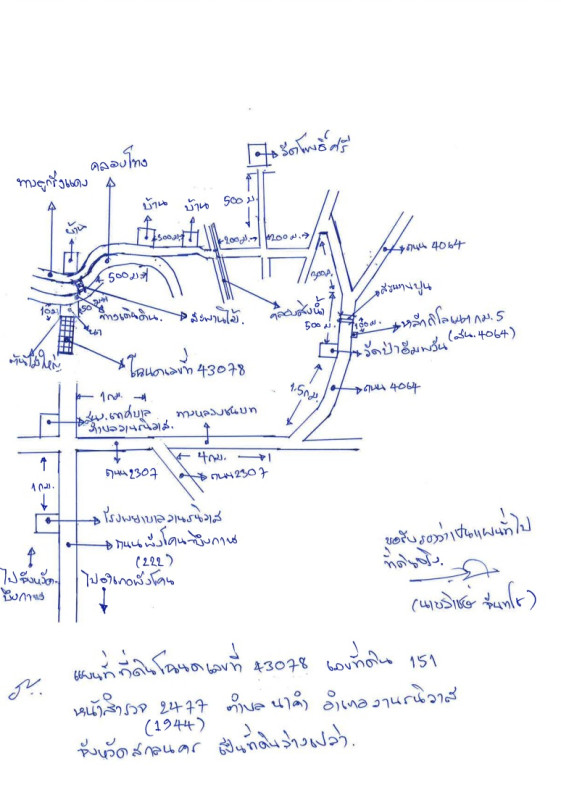 วัดโพธิ์ศรี
คลองโกง
ทางลูกรังแดง
500 ม.
บ้าน
บ้าน
บ้าน
500 ม.
200 ม.
200 ม.
ถนน 4064
500 ม.
500 ม.
สะพานปูน
100 ม.
หลักกิโลเมตร กม. 5
(สน. 4064)
คลองส่งน้ำ
500 ม.
สะพานไม้
ทางเดินดิน
10 ม.
50 ม.
นา
ต้นไม้ใหญ่
โฉนดเลขที่ 43078
วัดป่าอัมพวัน
1.5 กม.
ถนน 4064
1 กม.
สนง. เทศบาล
ตำบลวานรนิวาส
ทางหลวงชนบท
4 กม.
ถนน 2307
ถนน 2307
1 กม.
โรงพยาบาลวานรนิวาส
ถนนพังโคน-บึงกาฬ
(222)
ไปจังหวัด
บึงกาฬ
ไปอำเภอพังโคน
ขอรับรองว่าเป็นแผนที่ไป
ที่ดินจริง.
แผนที่ที่ดินโฉนดเลขที่ 43078 เลขที่ดิน 151
หน้าสำรวจ 2477 ตำบลนาคำ อำเภอวานรนิวาส
(1944)
จังหวัดสกลนคร เป็นที่ดินว่างเปล่า.